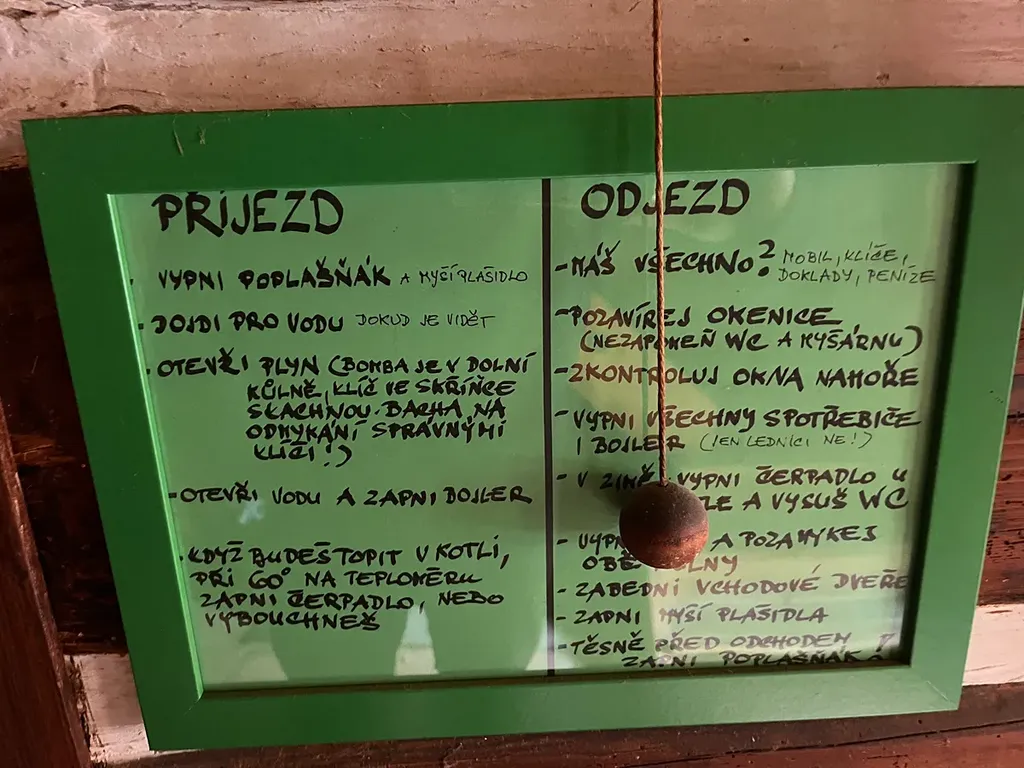 PŘÍJEZD
- VYPNI POPLAŠŇÁK A MYŠÍ PLAŠIDLO
- DOJDI PRO VODU DOKUD JE VIDĚT
- OTEVŘI PLYN (BOMBA JE V DOLNÍ
KŮLNĚ, KLÍČ VE SKŘÍŇCE
S LACHNOU. BACHA NA
ODMYKÁNÍ SPRÁVNÝMI
KLÍČI!)
- OTEVŘI VODU A ZAPNI BOJLER
- KDYŽ BUDEŠ TOPIT V KOTLI,
PŘI 60° NA TEPLOMĚRU
ZAPNI ČERPADLO, NEBO
VYBOUCHNEŠ
ODJEZD
- MÁŠ VŠECHNO? MOBIL, KLÍČE,
DOKLADY, PENÍZE
- POZAVÍREJ OKENICE
(NEZAPOMEŇ WC A MYŠÁRNU)
- ZKONTROLUJ OKNA NAHOŘE
- VYPNI VŠECHNY SPOTŘEBIČE
I BOJLER (JEN LEDNICI NE!)
- V ZIMĚ VYPNI ČERPADLO U
A VYSUŠ WC
- A POZAMYKEJ
OBĚ
- ZABEDNI VCHODOVÉ DVEŘE
- ZAPNI MYŠÍ PLAŠIDLA
- TĚSNĚ PŘED ODCHODEM
ZAPNI POPLAŠŇÁK!